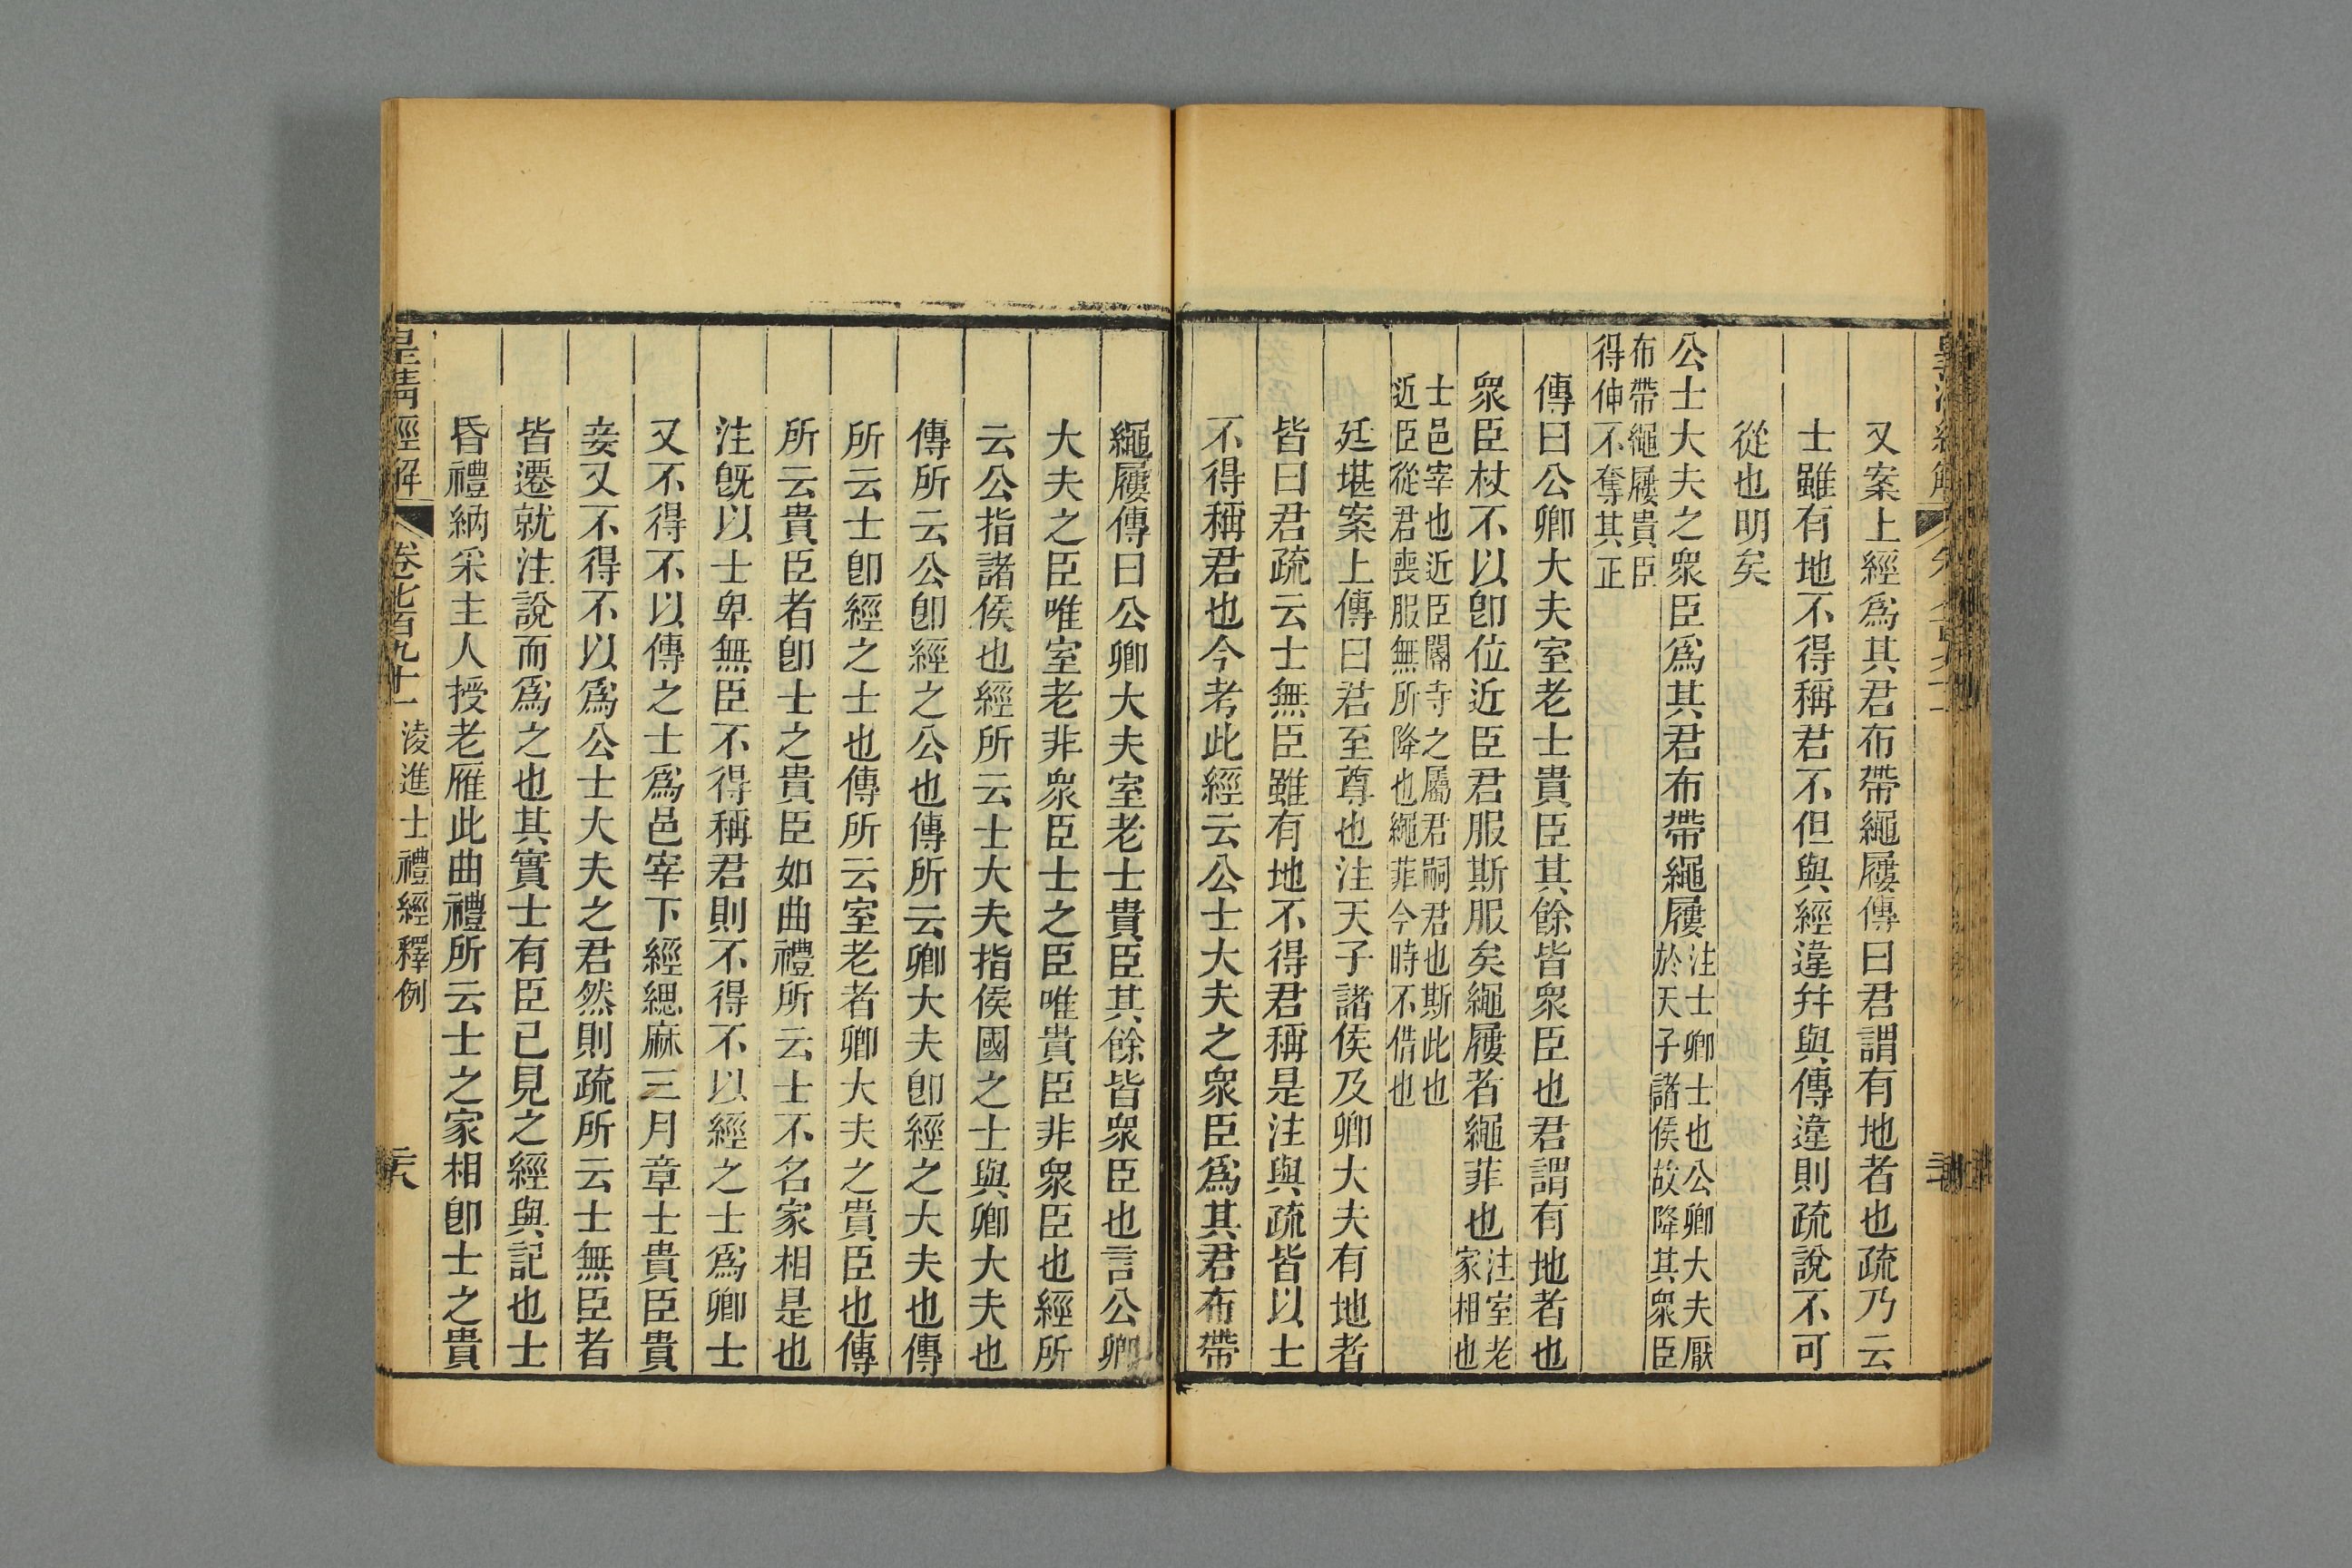 又案上經爲其君布帶繩屨傳曰君謂有地者也疏乃云
士雖有地不得稱君不但與經違幷與傳違則疏說不可
從也明矣
公士大夫之衆臣爲其君布帶繩屨注士卿士也公卿大夫厭
於天子諸侯故降其衆臣
布帶繩屨貴臣
得伸不奪其正
傳曰公卿大夫室老士貴臣其餘皆衆臣也君謂有地者也
衆臣杖不以卽位近臣君服斯服矣繩屨者繩菲也注室老
家相也
士邑宰也近臣閽寺之屬君嗣君也斯此也
近臣從君喪服無所降也繩菲今時不借也
廷堪案上傳曰君至尊也注天子諸侯及卿大夫有地者
皆曰君疏云士無臣雖有地不得君稱是注與疏皆以士
不得稱君也今考此經云公士大夫之衆臣爲其君布帶
繩屨傳曰公卿大夫室老士貴臣其餘皆衆臣也言公卿
大夫之臣唯室老非衆臣士之臣唯貴臣非衆臣也經所
云公指諸侯也經所云士大夫指侯國之士與卿大夫也
傳所云公卽經之公也傳所云卿大夫卽經之大夫也傳
所云士卽經之士也傳所云室老者卿大夫之貴臣也傳
所云貴臣者卽士之貴臣如曲禮所云士不名家相是也
注旣以士卑無臣不得稱君則不得不以經之士爲卿士
又不得不以傳之士爲邑宰下經緦麻三月章士貴臣貴
妾又不得不以爲公士大夫之君然則疏所云士無臣者
皆遷就注說而爲之也其實士有臣已見之經與記也士
昏禮納采主人授老雁此曲禮所云士之家相卽士之貴
皇淸經解 卷七百九十一 淩進士禮經釋例 六